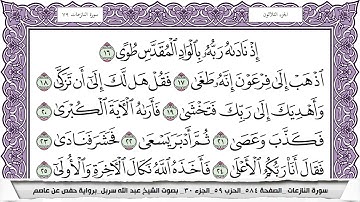 الجزء الثلاثون
سورة النازعات ٧٩
إِذْ نَادَىٰهُ رَبُّهُۥ بِٱلْوَادِ ٱلْمُقَدَّسِ طُوًى ١٦
ٱذْهَبْ إِلَىٰ فِرْعَوْنَ إِنَّهُۥ طَغَىٰ ١٧ فَقُلْ هَل لَّكَ إِلَىٰٓ أَن تَزَكَّىٰ ١٨
وَأَهْدِيَكَ إِلَىٰ رَبِّكَ فَتَخْشَىٰ ١٩ فَأَرَىٰهُ ٱلْـَٔايَةَ ٱلْكُبْرَىٰ ٢٠
فَكَذَّبَ وَعَصَىٰ ٢١ ثُمَّ أَدْبَرَ يَسْعَىٰ ٢٢ فَحَشَرَ فَنَادَىٰ ٢٣
فَقَالَ أَنَا۠ رَبُّكُمُ ٱلْأَعْلَىٰ ٢٤ فَأَخَذَهُ ٱللَّهُ نَكَالَ ٱلْـَٔاخِرَةِ وَٱلْأُولَىٰٓ ٢٥
سورة النازعات _ الصفحة ٥٨٤ _ الحزب ٥٩ _ الجزء ٣٠ _ بصوت الشيخ عبد الله سربل _ برواية حفص عن عاصم